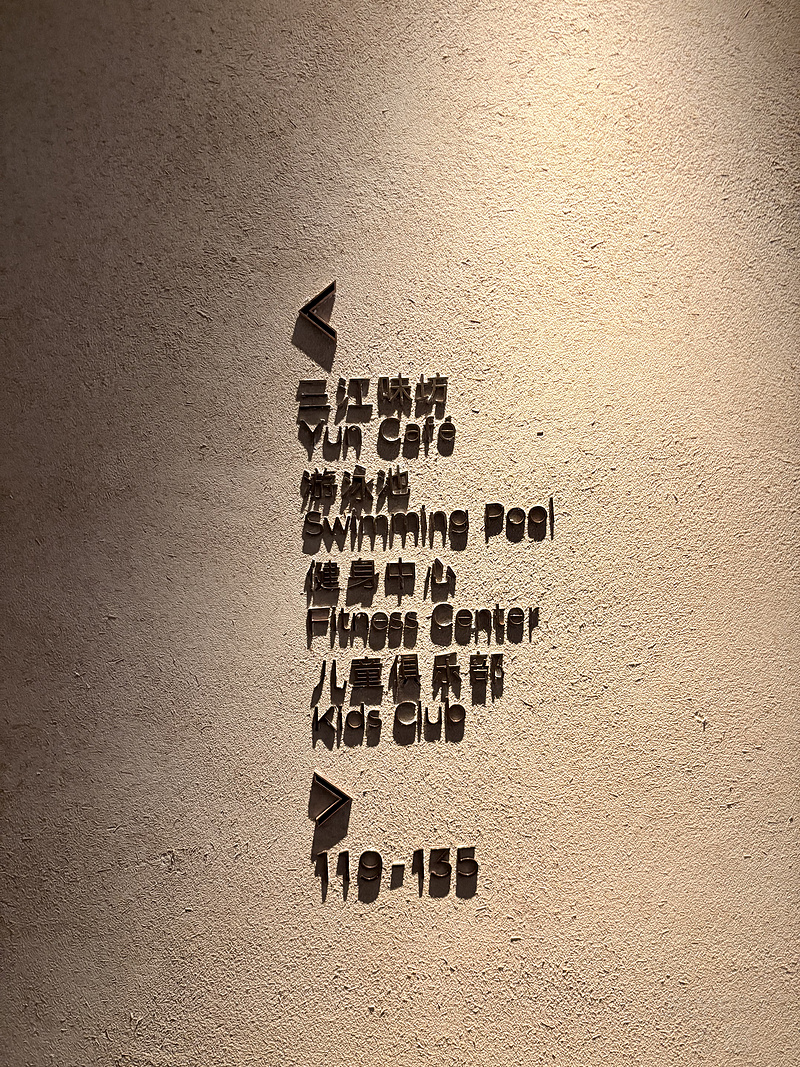 <
三江味坊
Yun Café
游泳池
Swimming Pool
健身中心
Fitness Center
儿童俱乐部
Kids Club
>
119-135